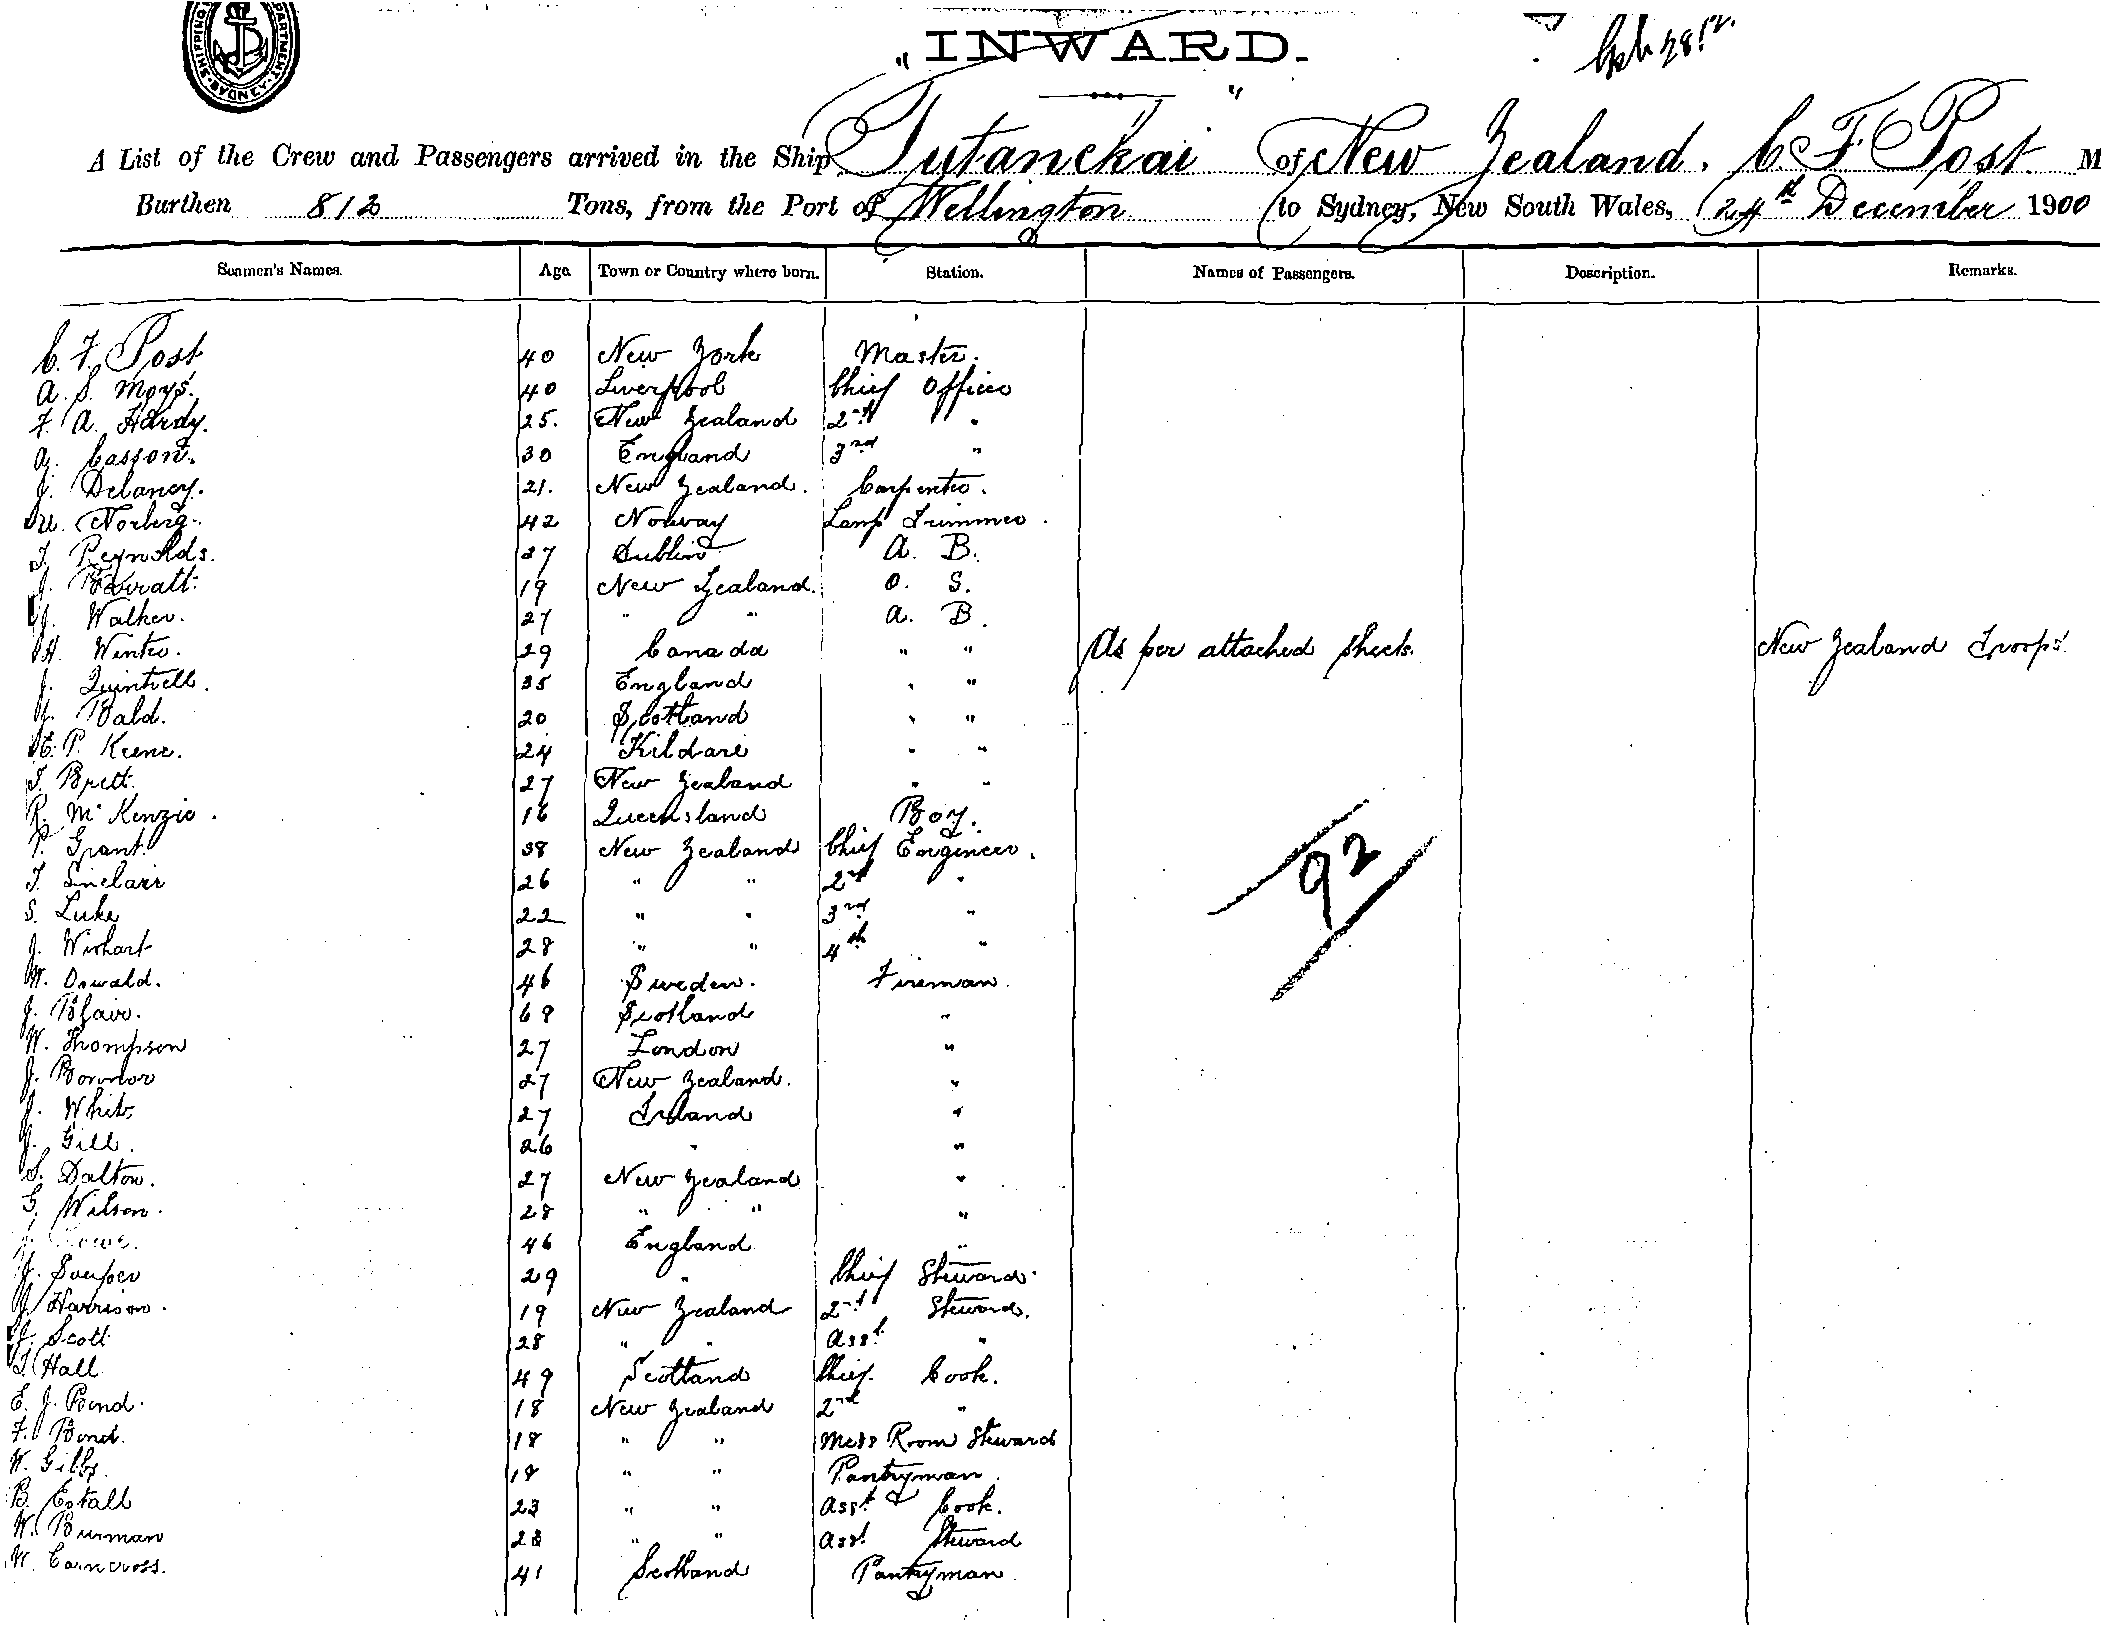 SHIPPING DEPARTMENT. SYDNEY
"INWARD."
A List of the Crew and Passengers arrived in the Ship Tutanekai of New Zealand. C. F. Post M
Burthen 812 Tons, from the Port of Wellington to Sydney, New South Wales, 24th December 1900
Seamen's Names. Age Town or Country where born. Station. Names of Passengers. Description. Remarks.
C. F. Post 40 New York Master.
A. S. Moys. 40 Liverpool Chief Officer
F. A. Hardy. 25. New Zealand 2nd "
A. Casson. 30 England 3rd "
J. Delaney. 21. New Zealand. Carpenter.
Norberg. 42 Norway Lamp Trimmer.
T. Reynolds. 37 Dublin A. B.
J. Barratt. 19 New Zealand. O. S.
J. Walker. 27 " " A. B.
H. Winter. 29 Canada " " As per attached sheets. New Zealand Troops.
J. Quintrell. 35 England " "
Bald. 20 Scotland " "
P. Keene. 24 Kildare " "
T. Brett. 27 New Zealand " "
R. McKenzie. 16 Queensland Boy.
P. Grant. 38 New Zealand Chief Engineer. 92
T. Sinclair 26 " " 2nd "
S. Luke 22 " " 3rd "
J. Wishart 28 " " 4th "
W. Oswald. 46 Sweden. Fireman.
J. Blair. 69 Scotland "
W. Thompson 27 London "
J. 27 New Zealand. "
J. White 27 Ireland "
J. Gill. 26 " "
S. Dalton. 27 New Zealand "
G. Wilson. 28 " " "
J. 46 England "
J. Souper 29 " Chief Steward.
J. Harrison. 19 New Zealand 2nd Steward.
J. Scott 28 " " Asst. "
T. Hall 49 Scotland Chief. Cook.
E. J. Bond. 18 New Zealand 2nd "
F. Bond. 18 " " Mess Room Steward
W. Gibbs. 18 " " Pantryman.
B. Estall 23 " " Asst. Cook.
W. Burman 23 " " Asst. Steward
W. Cairncross. 41 Scotland Pantryman